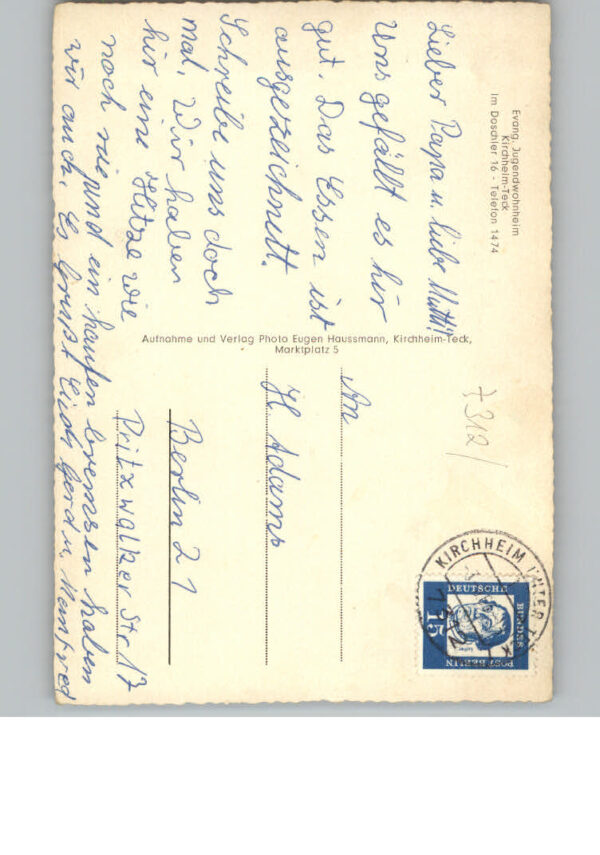 Evang. Jugendwohnheim
Kirchheim-Teck
Im Doschler 16 - Telefon 1474
Lieber Papa u. liebe Mutti!
Uns gefällt es hir
gut. Das Essen ist
ausgezeichnett.
Schreibe uns doch
mal. Wir haben
hir eine Hitze wie
noch nie und ein haufen bremsen haben
wir auch. Es Grüßt Euch Gerd u. Manfred
Aufnahme und Verlag Photo Eugen Haussmann, Kirchheim-Teck,
Marktplatz 5
7312/
An
H Adams
Berlin 21
Pritzwalker Str. 17
KIRCHHEIM UNTER TECK
DEUTSCHE
BUNDES
POST BERLIN
15